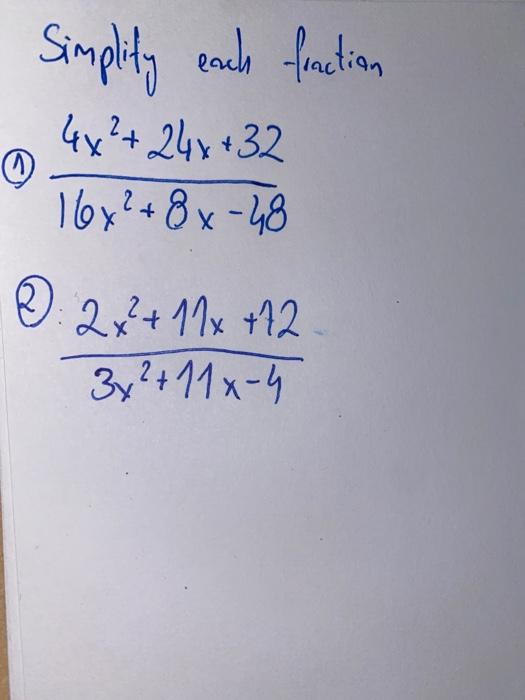 Simplify each fraction
① 4x²+24x+32
16x²+8x-48
②. 2x²+11x+12
3x²+11x-4